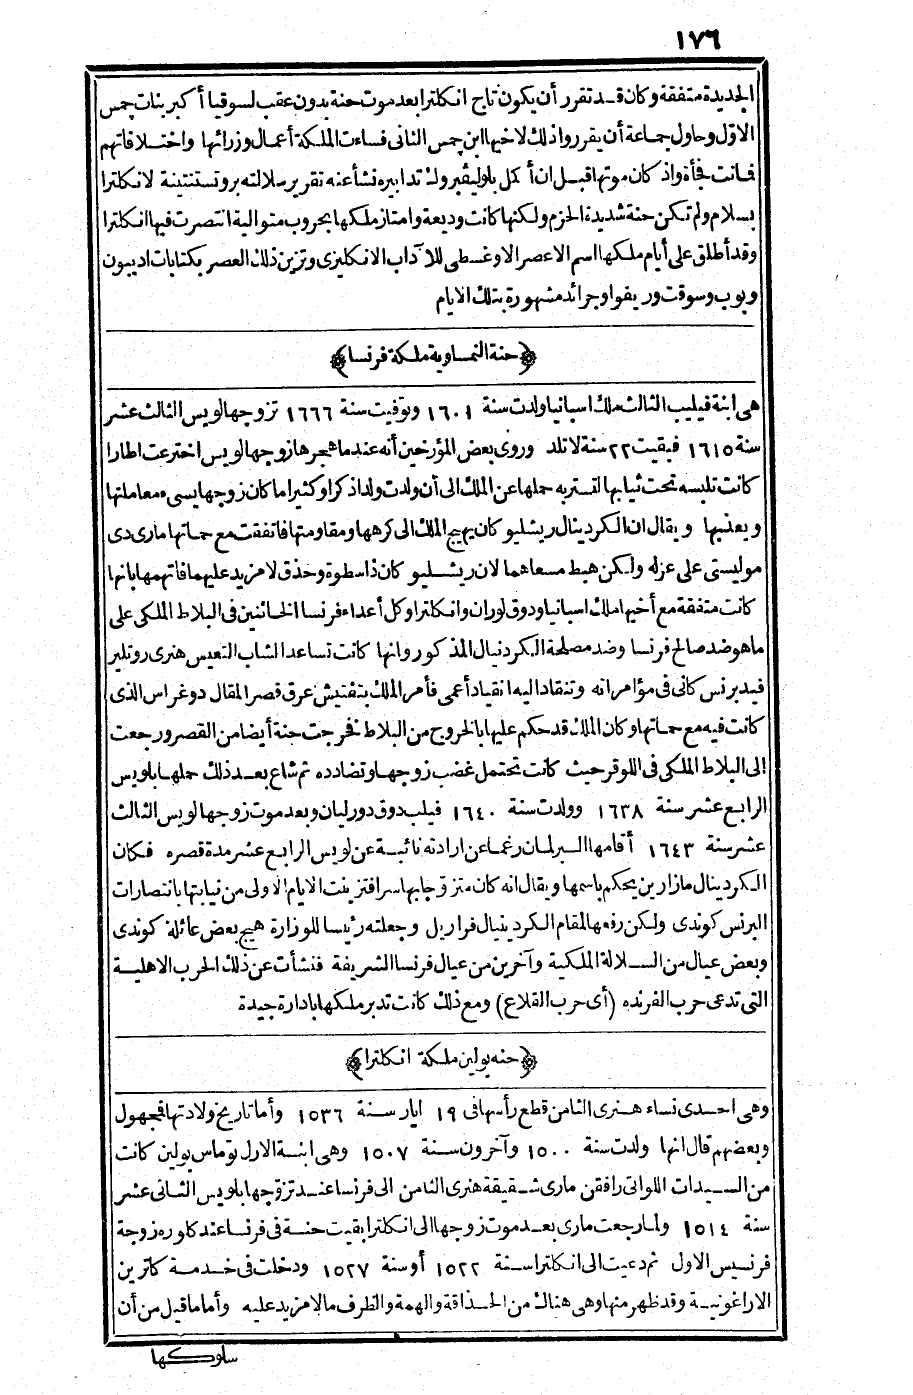 ١٧٦
الجديدة متفقة وكان قد تقرر أن يكون تاج انكلترا بعد موت حنة بدون عقب لسوقيا أكبر بنات جمس
الاوّل وحاول جماعة أن يقرروا ذلك لاخيها ابن جمس الثانى فساءت الملكة أعمال وزرائها واختلافاتهم
فماتت فجأة واذ كان موتها قبل ان أكمل بلوليڤبرولـ تدابيره نشأ عنه تقرير سلالته بروتستنتية لانكلترا
بسلام ولم تكن حنة شديدة الحزم ولكنها كانت وديعة وامتاز ملكها بحروب متوالية انتصرت فيها انكلترا
وقد أطلق على أيام ملكها اسم الاعصر الاوغسطى للآداب الانكليزى وتزين ذلك العصر بكتابات اديبون
وبوب وسوقت وريفو او جرائد مشهورة بتلك الايام
﴿حنة النمساوية ملكة فرنسا﴾
هى ابنة فيليب الثالث ملك اسبانيا ولدت سنة ١٦٠١ وتوفيت سنة ١٦٦٦ تزوجها لويس الثالث عشر
سنة ١٦١٥ فبقيت ٢٢ سنة لا تلد وروى بعض المؤرخين أنه عندما هجرها زوجها لويس اخترعت اطارا
كانت تلبسه تحت ثيابها لتستر به حملها عن الملك الى أن ولدت ولدا ذكرا وكثيرا ما كان زوجها يسىء معاملتها
ويعذبها ويقال ان الكردينال ريشليو كان يهيج الملك الى كرهها ومقاومتها فاتفقت مع حماتها مارى دى
موليستى على عزله ولكن هبط مسعاهما لان ريشليو كان ذا سطوة وحذق لا مزيد عليهما فاتهمها بانها
كانت متفقة مع أخيها ملك اسبانيا ودوق لوران وانكلترا وكل أعداء فرنسا الخائنين فى البلاط الملكى على
ما هو ضد صالح فرنسا وضد مصلحة الكردنيال المذكور وانها كانت تساعد الشاب التعيس هنرى روتلير
فيدبرنس كانى فى مؤامراته وتنقاد اليه انقيادا أعمى فأمر الملك بتفتيش غرق قصر المقال دوغراس الذى
كانت فيه مع حماتها وكان الملك قد حكم عليها بالخروج من البلاط فخرجت حنة أيضا من القصر ورجعت
الى البلاط الملكى فى اللوقر حيث كانت تحتمل غضب زوجها وتضادده ثم شاع بعد ذلك حملها بلويس
الرابع عشر سنة ١٦٣٨ وولدت سنة ١٦٤٠ فيلب دوق دورليان وبعد موت زوجها لويس الثالث
عشر سنة ١٦٤٣ أقامها البرلمان رغما عن ارادته نائبة عن لويس الرابع عشر مدة قصره فكان
الكردينال مازارين يحكم باسمها ويقال انه كان متزوجا بها سرا فتزينت الايام الاولى من نيابتها بانتصارات
البرنس كوندى ولكن رفعها لمقام الكردينيال فراريل وجعلته رئيسا للوزارة هيج بعض عائلة كوندى
وبعض عيال من السلالة الملكية وآخرين من عيال فرنسا الشريفة فنشأت عن ذلك الحرب الاهلية
التى تدعى حرب الفرنده (أى حرب القلاع) ومع ذلك كانت تدبر ملكها بادارة جيدة
﴿حنه بولين ملكة انكلترا﴾
وهى احدى نساء هنرى الثامن قطع رأسها فى ١٩ ايار سنة ١٥٣٦ وأما تاريخ ولادتها فمجهول
وبعضهم قال انها ولدت سنة ١٥٠٠ وآخرون سنة ١٥٠٧ وهى ابنة الارل توماس بولين كانت
من السيدات اللواتى رافقن مارى شقيقة هنرى الثامن الى فرنسا عند تزوجها بلويس الثانى عشر
سنة ١٥١٤ ولما رجعت مارى بعد موت زوجها الى انكلترا بقيت حنة فى فرنسا عند كلوره زوجة
فرنسيس الاول ثم دعيت الى انكلترا سنة ١٥٢٢ أو سنة ١٥٢٧ ودخلت فى خدمة كاترين
الاراغونية وقد ظهر منها وهى هناك من الحذاقة والهمة والظرف ما لا مزيد عليه وأما ما قيل من أن
سلوكها